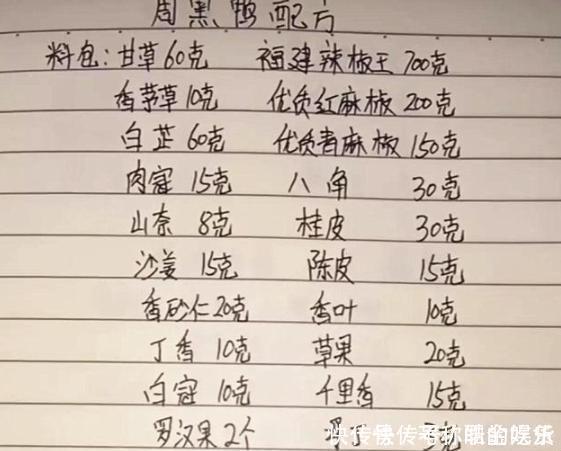 周黑鸭配方
料包:甘草60克 福建辣椒王700克
香茅草10克 优质红麻椒200克
白芷60克 优质青麻椒150克
肉寇15克 八角 30克
山奈 8克 桂皮 30克
沙姜15克 陈皮 15克
香砂仁20克 香叶 10克
丁香10克 草果 20克
白寇10克 千里香 15克
罗汉果2个